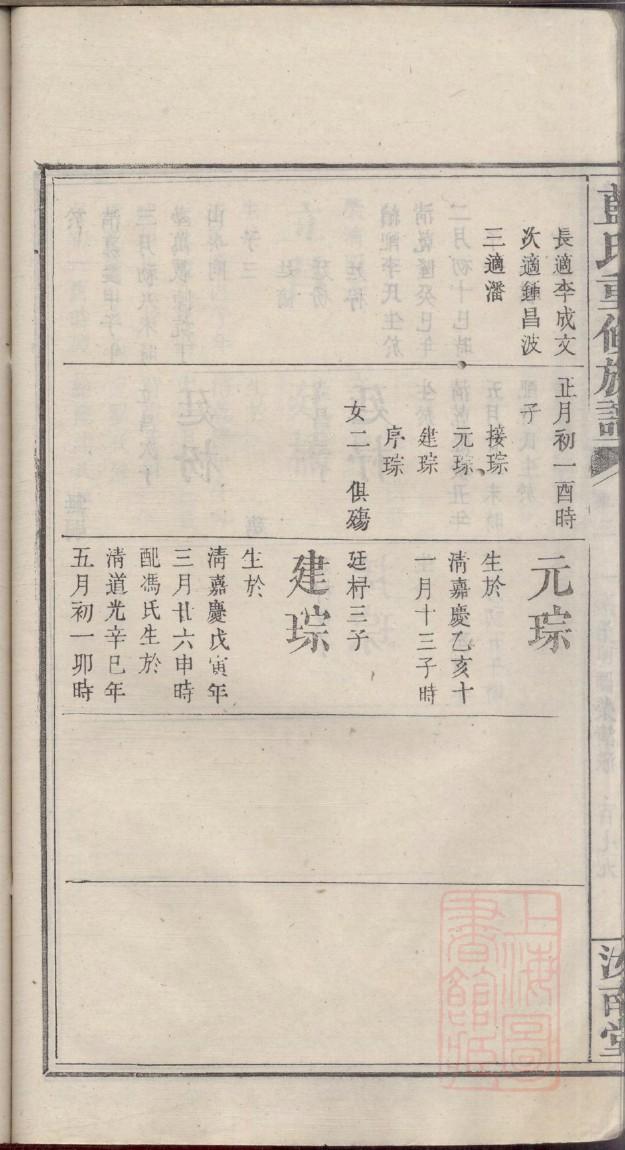 藍氏重修族譜
汝南堂
長適李成文
次適鍾昌波
三適潘
正月初一酉時
子
接琮
元琮
建琮
序琮
女二 俱殤
元琮
生於
清嘉慶乙亥十
一月十三子時
廷杍三子
建琮
生於
清嘉慶戊寅年
三月廿六申時
配馮氏生於
清道光辛巳年
五月初一卯時
上海圖
書館藏